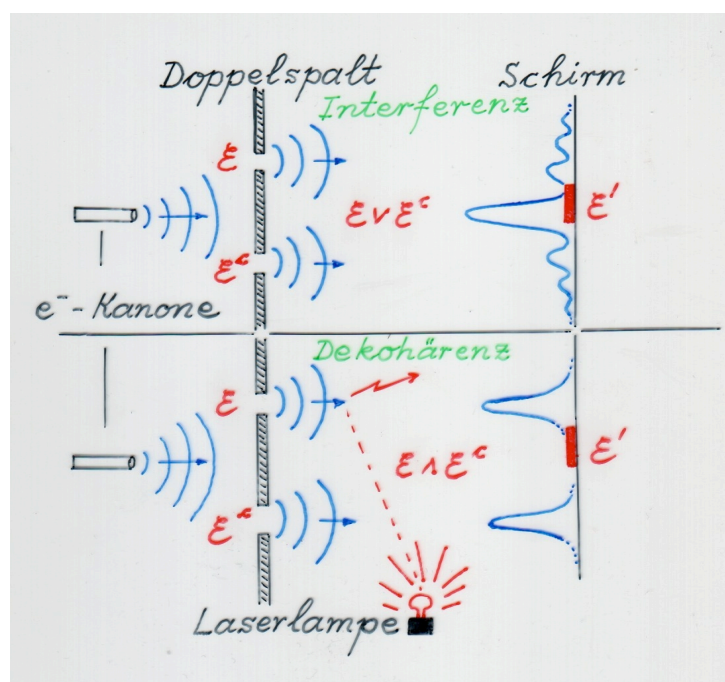 Doppelspalt
Schirm
Interferenz
ℰ
ℰ ∨ ℰᶜ
ℰ'
ℰᶜ
e⁻-Kanone
Dekohärenz
ℰ
ℰ ∧ ℰᶜ
ℰ'
ℰᶜ
Laserlampe